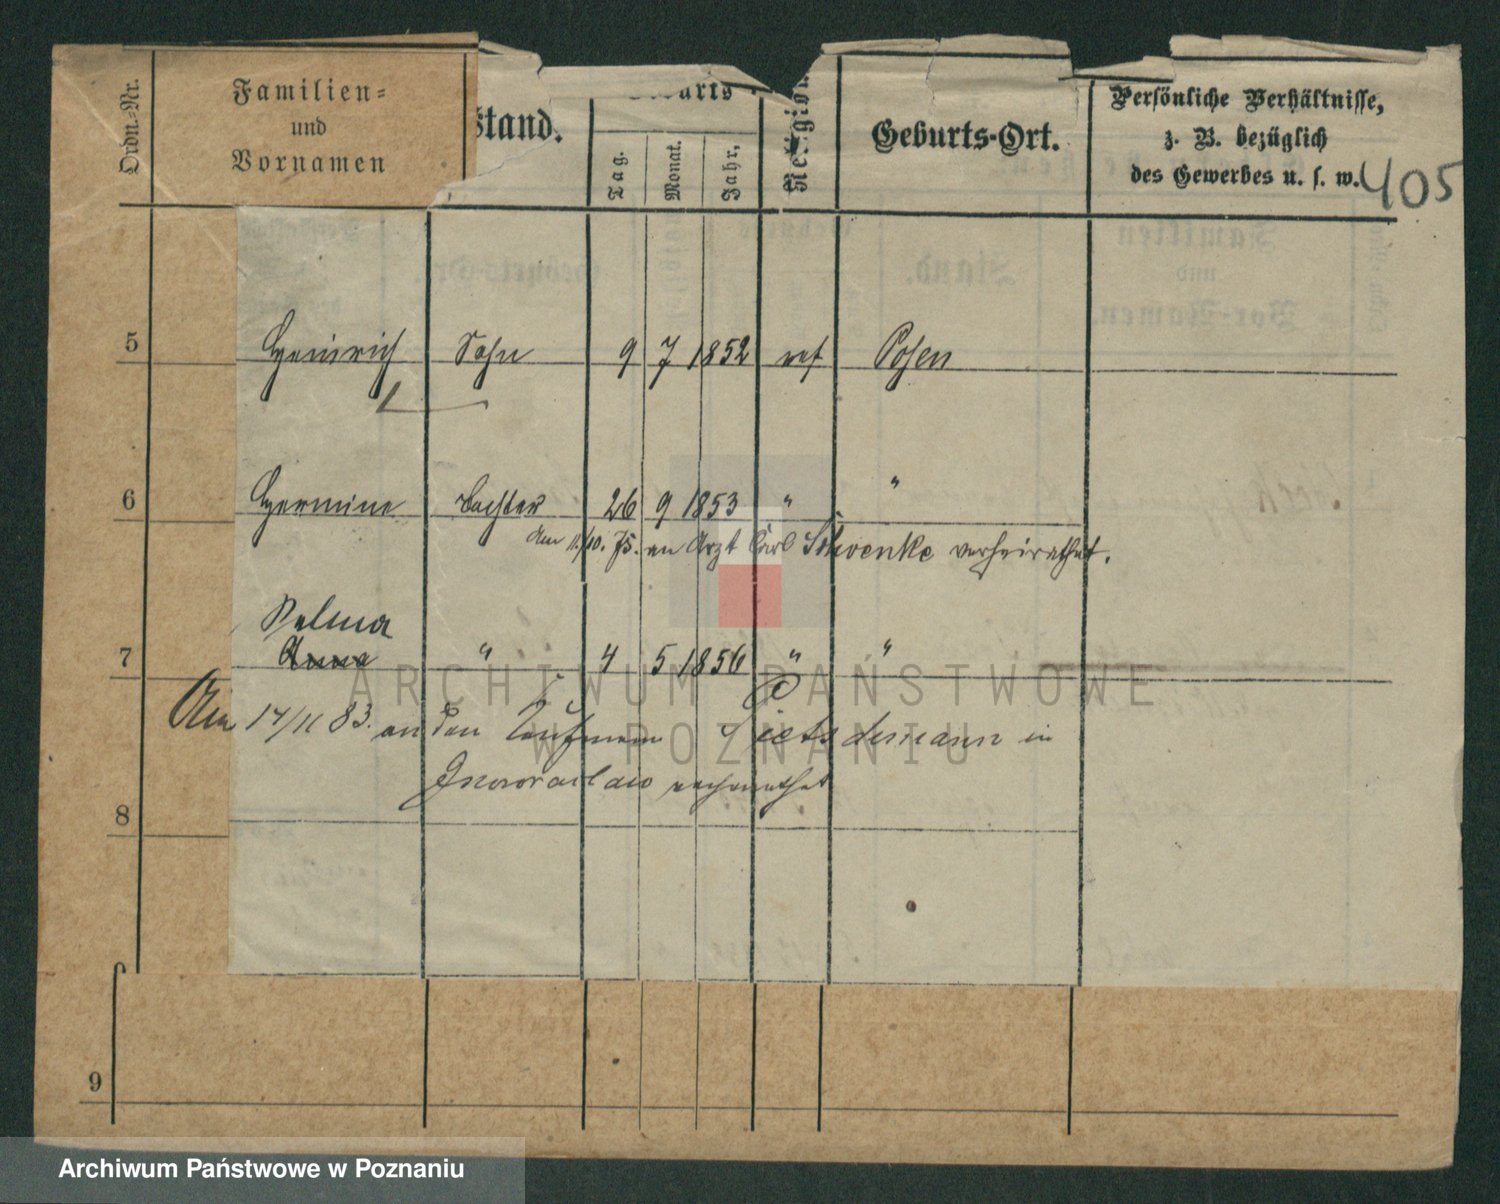 Ordn.-Nr.
Familien-
und
Vornamen
Stand.
Geburts
Tag.
Monat.
Jahr.
Religion.
Geburts-Ort.
Persönliche Verhältnisse,
z. B. bezüglich
des Gewerbes u. s. w.
405
5 Heinrich Sohn 9 7 1852 ref Posen
6 Hermine Tochter 26 9 1853 " "
Am 11./10. 75. an Arzt Carl Schwenke verheirathet.
Selma
7 Anna " 4 5 1856 " "
Am 17/11 83. an den Kaufmann in
Inowraclaw verheirathet
8
9
ARCHIWUM PAŃSTWOWE
W POZNANIU
Archiwum Państwowe w Poznaniu